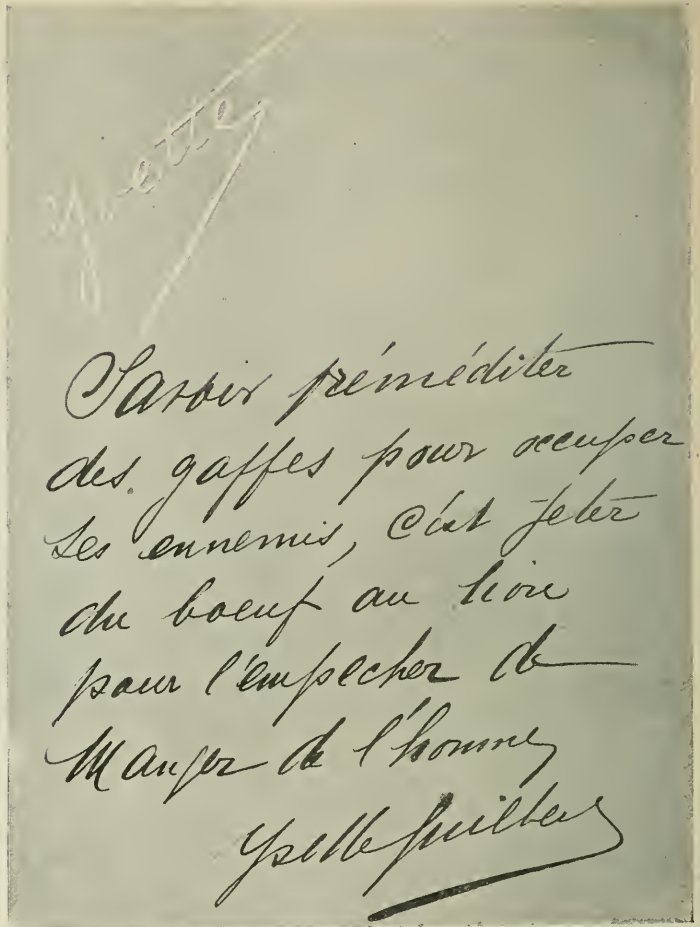 Yvette
Savoir préméditer
des gaffes pour occuper
ses ennemis, c'est jeter
du boeuf au lion
pour l'empecher de
Manger de l'homme
Yvette Guilbert